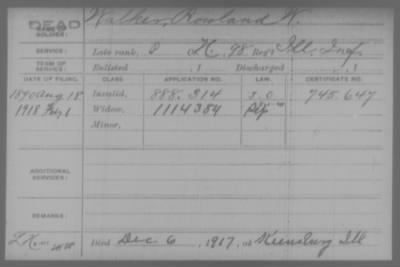 DEAD
NAME OF SOLDIER: Walker, Rowland W.
SERVICE: Late rank, P H, 98 Reg't Ill. Inf.
TERM OF SERVICE: Enlisted , 1 Discharged , 1
DATE OF FILING. CLASS APPLICATION NO. LAW. CERTIFICATE NO.
1890 Aug 18 Invalid, 888.314 J.O 745.647
1918 Feb 1 Widow, 1114354
Minor,
ADDITIONAL SERVICES:
REMARKS:
Died Dec 6, 1917, at Keensburg Ill